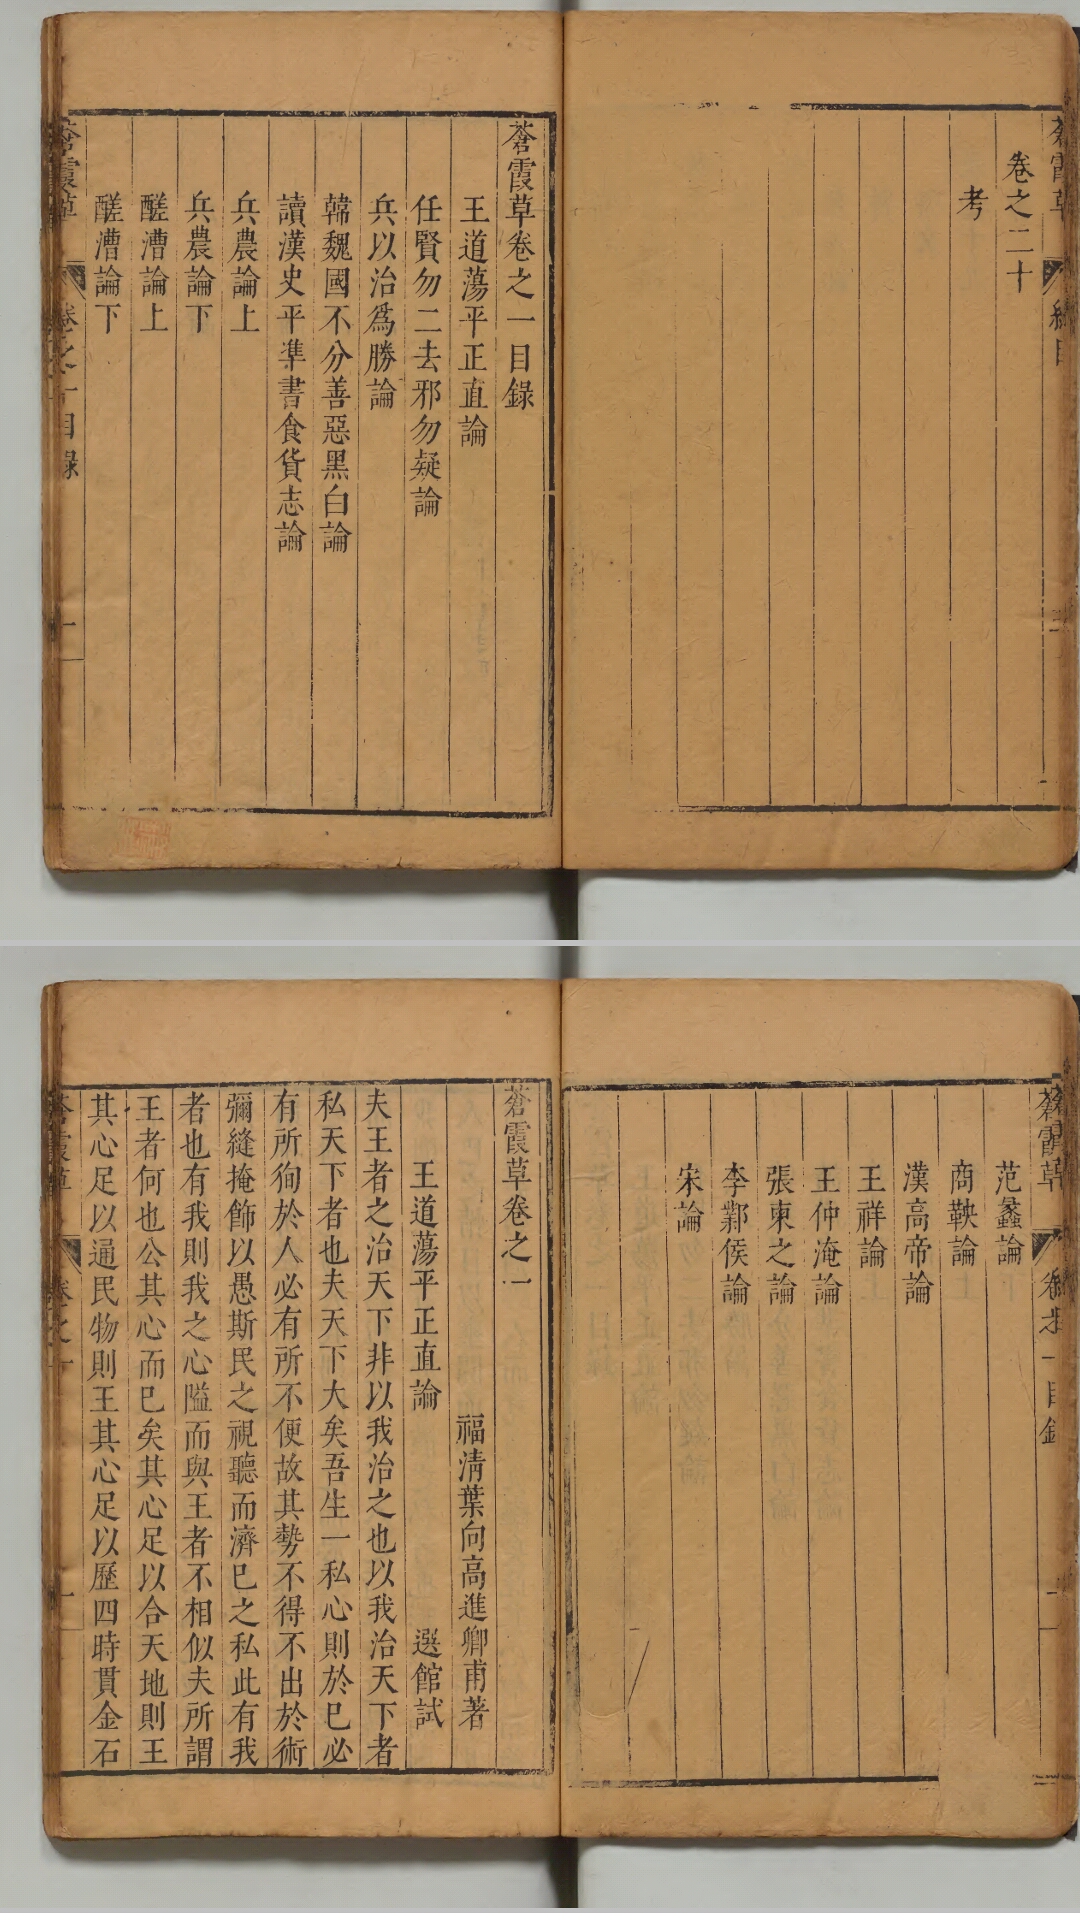 蒼霞草
總目
卷之二十
考
蒼霞草卷之一目錄
王道蕩平正直論
任賢勿二去邪勿疑論
兵以治爲勝論
韓魏國不分善惡黑白論
讀漢史平準書食貨志論
兵農論上
兵農論下
醝漕論上
醝漕論下
蒼霞草
卷之一目錄
一
蒼霞草
卷之一目錄
范蠡論
商鞅論
漢高帝論
王祥論
王仲淹論
張柬之論
李鄴侯論
宋論
蒼霞草卷之一
福淸葉向高進卿甫著
王道蕩平正直論
選館試
夫王者之治天下非以我治之也以我治天下者
私天下者也夫天下大矣吾生一私心則於已必
有所狥於人必有所不便故其勢不得不出於術
彌縫掩飾以愚斯民之視聽而濟已之私此有我
者也有我則我之心隘而與王者不相似夫所謂
王者何也公其心而已矣其心足以合天地則王
其心足以通民物則王其心足以歷四時貫金石
蒼霞草
卷之一
一